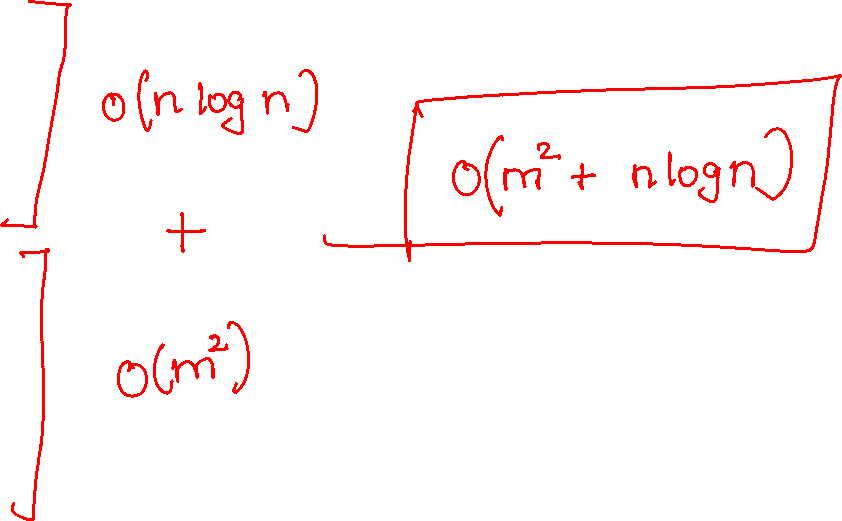 O(n log n)
+
O(m²)
O(m² + n log n)